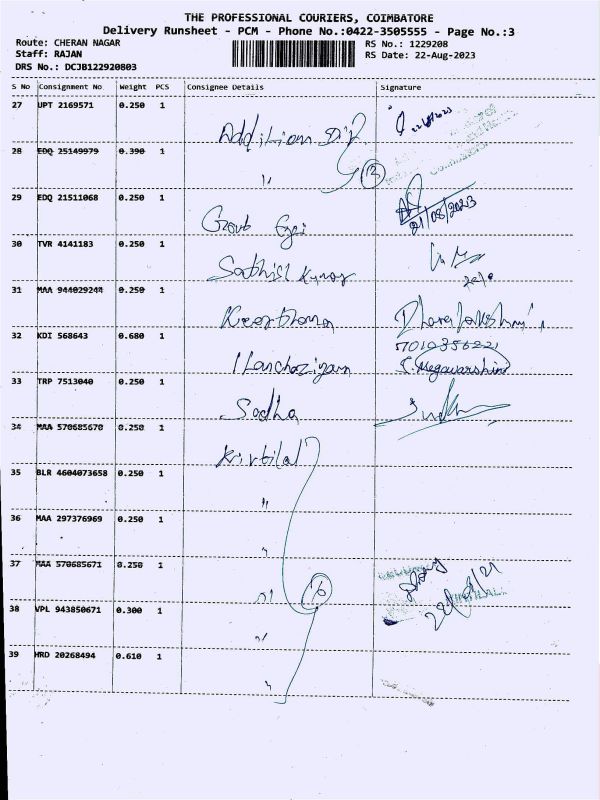 THE PROFESSIONAL COURIERS, COIMBATORE
Delivery Runsheet - PCM - Phone No.:0422-3505555 - Page No.:3
Route: CHERAN NAGAR
RS No.: 1229208
Staff: RAJAN
RS Date: 22-Aug-2023
DRS No.: DCJB122920803
S No Consignment No Weight PCS Consignee Details Signature
27 UPT 2169571 0.250 1
28 EDQ 25149979 0.390 1 "
29 EDQ 21511068 0.250 1
21/08/2023
30 TVR 4141183 0.250 1 Sathish Kumar
31 MAA 944029244 0.250 1 Keerthana
32 KDI 568643 0.680 1 Ilanchaziyam
7010356221
S. Megavarshini
33 TRP 7513040 0.250 1 Sadha
34 MAA 570685670 0.250 1 Kirtilal
35 BLR 4604073658 0.250 1 "
36 MAA 297376969 0.250 1 "
37 MAA 570685671 0.250 1 "
38 VPL 943850671 0.300 1 "
39 HRD 20268494 0.610 1 "